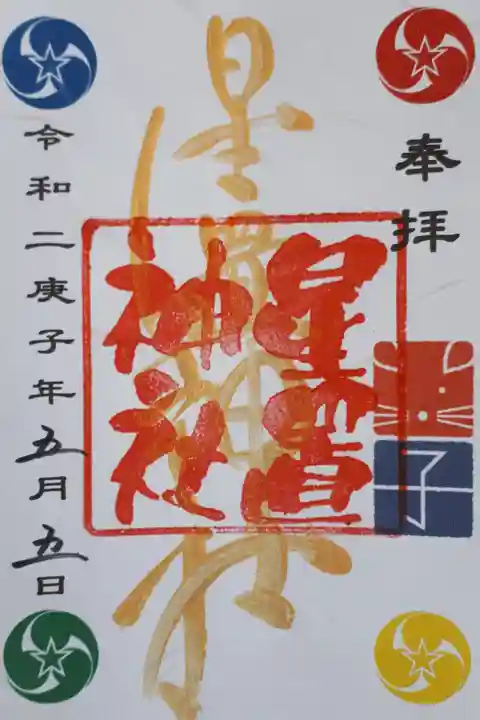 奉拝
子
星置神社
星置
神社
令和二庚子年五月五日